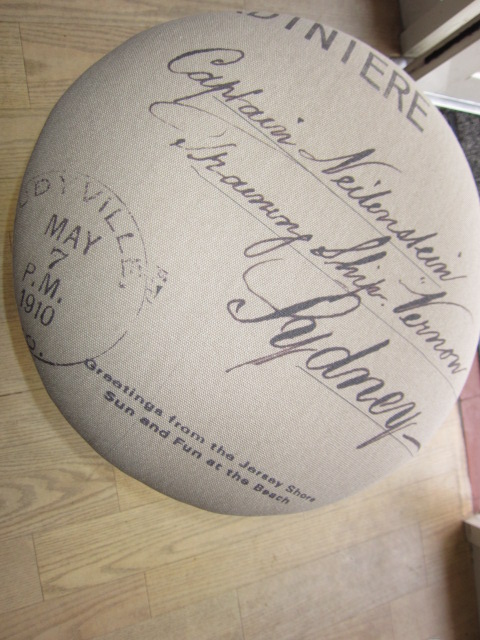 DINIERE
Captain Neitenstein
Training Ship. "Vernon
Sydney
DYVILLE
MAY
7
P.M.
1910
O.
Greetings from the Jersey Shore
Sun and Fun at the Beach